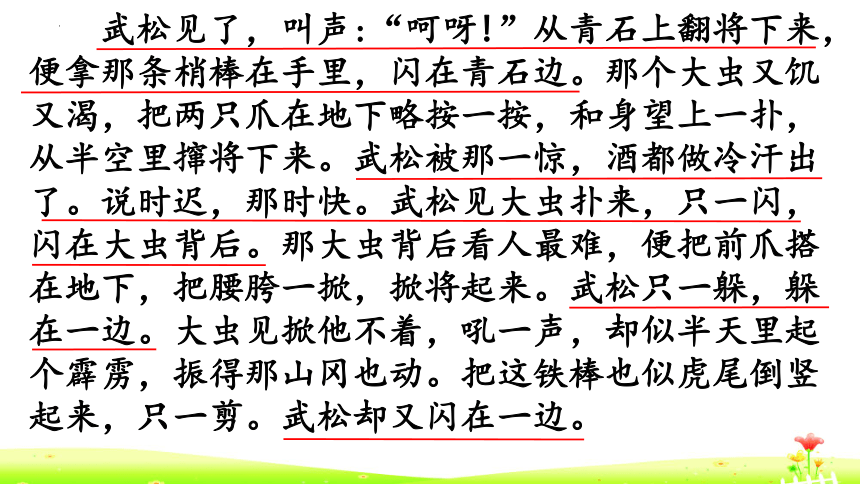 武松见了，叫声：“呵呀!”从青石上翻将下来，
便拿那条梢棒在手里，闪在青石边。那个大虫又饥
又渴，把两只爪在地下略按一按，和身望上一扑，
从半空里撺将下来。武松被那一惊，酒都做冷汗出
了。说时迟，那时快。武松见大虫扑来，只一闪，
闪在大虫背后。那大虫背后看人最难，便把前爪搭
在地下，把腰胯一掀，掀将起来。武松只一躲，躲
在一边。大虫见掀他不着，吼一声，却似半天里起
个霹雳，振得那山冈也动。把这铁棒也似虎尾倒竖
起来，只一剪。武松却又闪在一边。